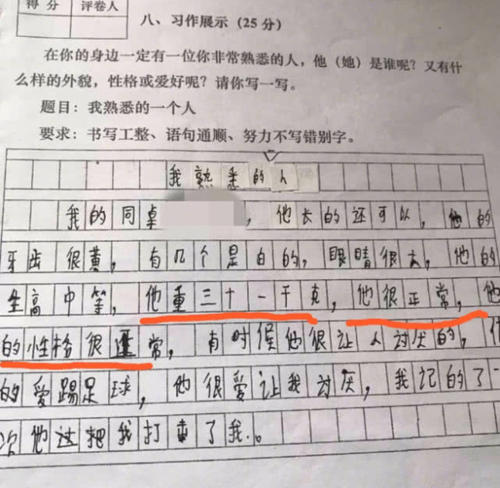 得分 评卷人
八、习作展示（25分）
在你的身边一定有一位你非常熟悉的人，他（她）是谁呢？又有什
么样的外貌，性格或爱好呢？请你写一写。
题目：我熟悉的一个人
要求：书写工整、语句通顺、努力不写错别字。
我熟悉的人
我的同桌，他长的还可以，他的
牙齿很黄，有几个是白的，眼睛很大，他的
生高中等，他重三十一千克，他很正常，他
的性格很正常，有时候他很让人讨厌的，
的爱踢足球，他很爱让我讨厌，我记的了一
次他过把我打了我。